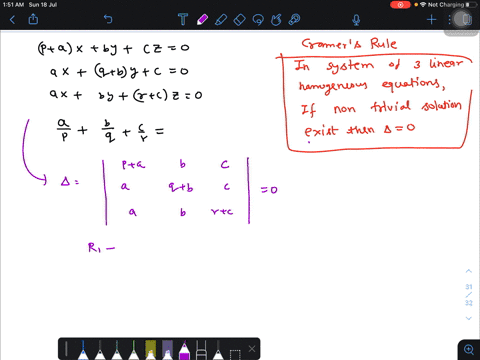 1:51 AM Sun 18 Jul
Not Charging
(p+a)x + by + cz = 0
ax + (q+b)y + c = 0
ax + by + (r+c) z = 0
a/p + b/q + c/r =
Δ = | p+a b c |
| a q+b c | = 0
| a b r+c |
R₁ −
Cramer's Rule
In system of 3 linear
homogeneous equations,
If non trivial solution
exist then Δ = 0
31
/
32